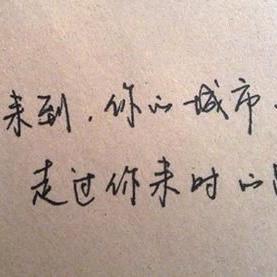 来到，你的城市
走过你来时的